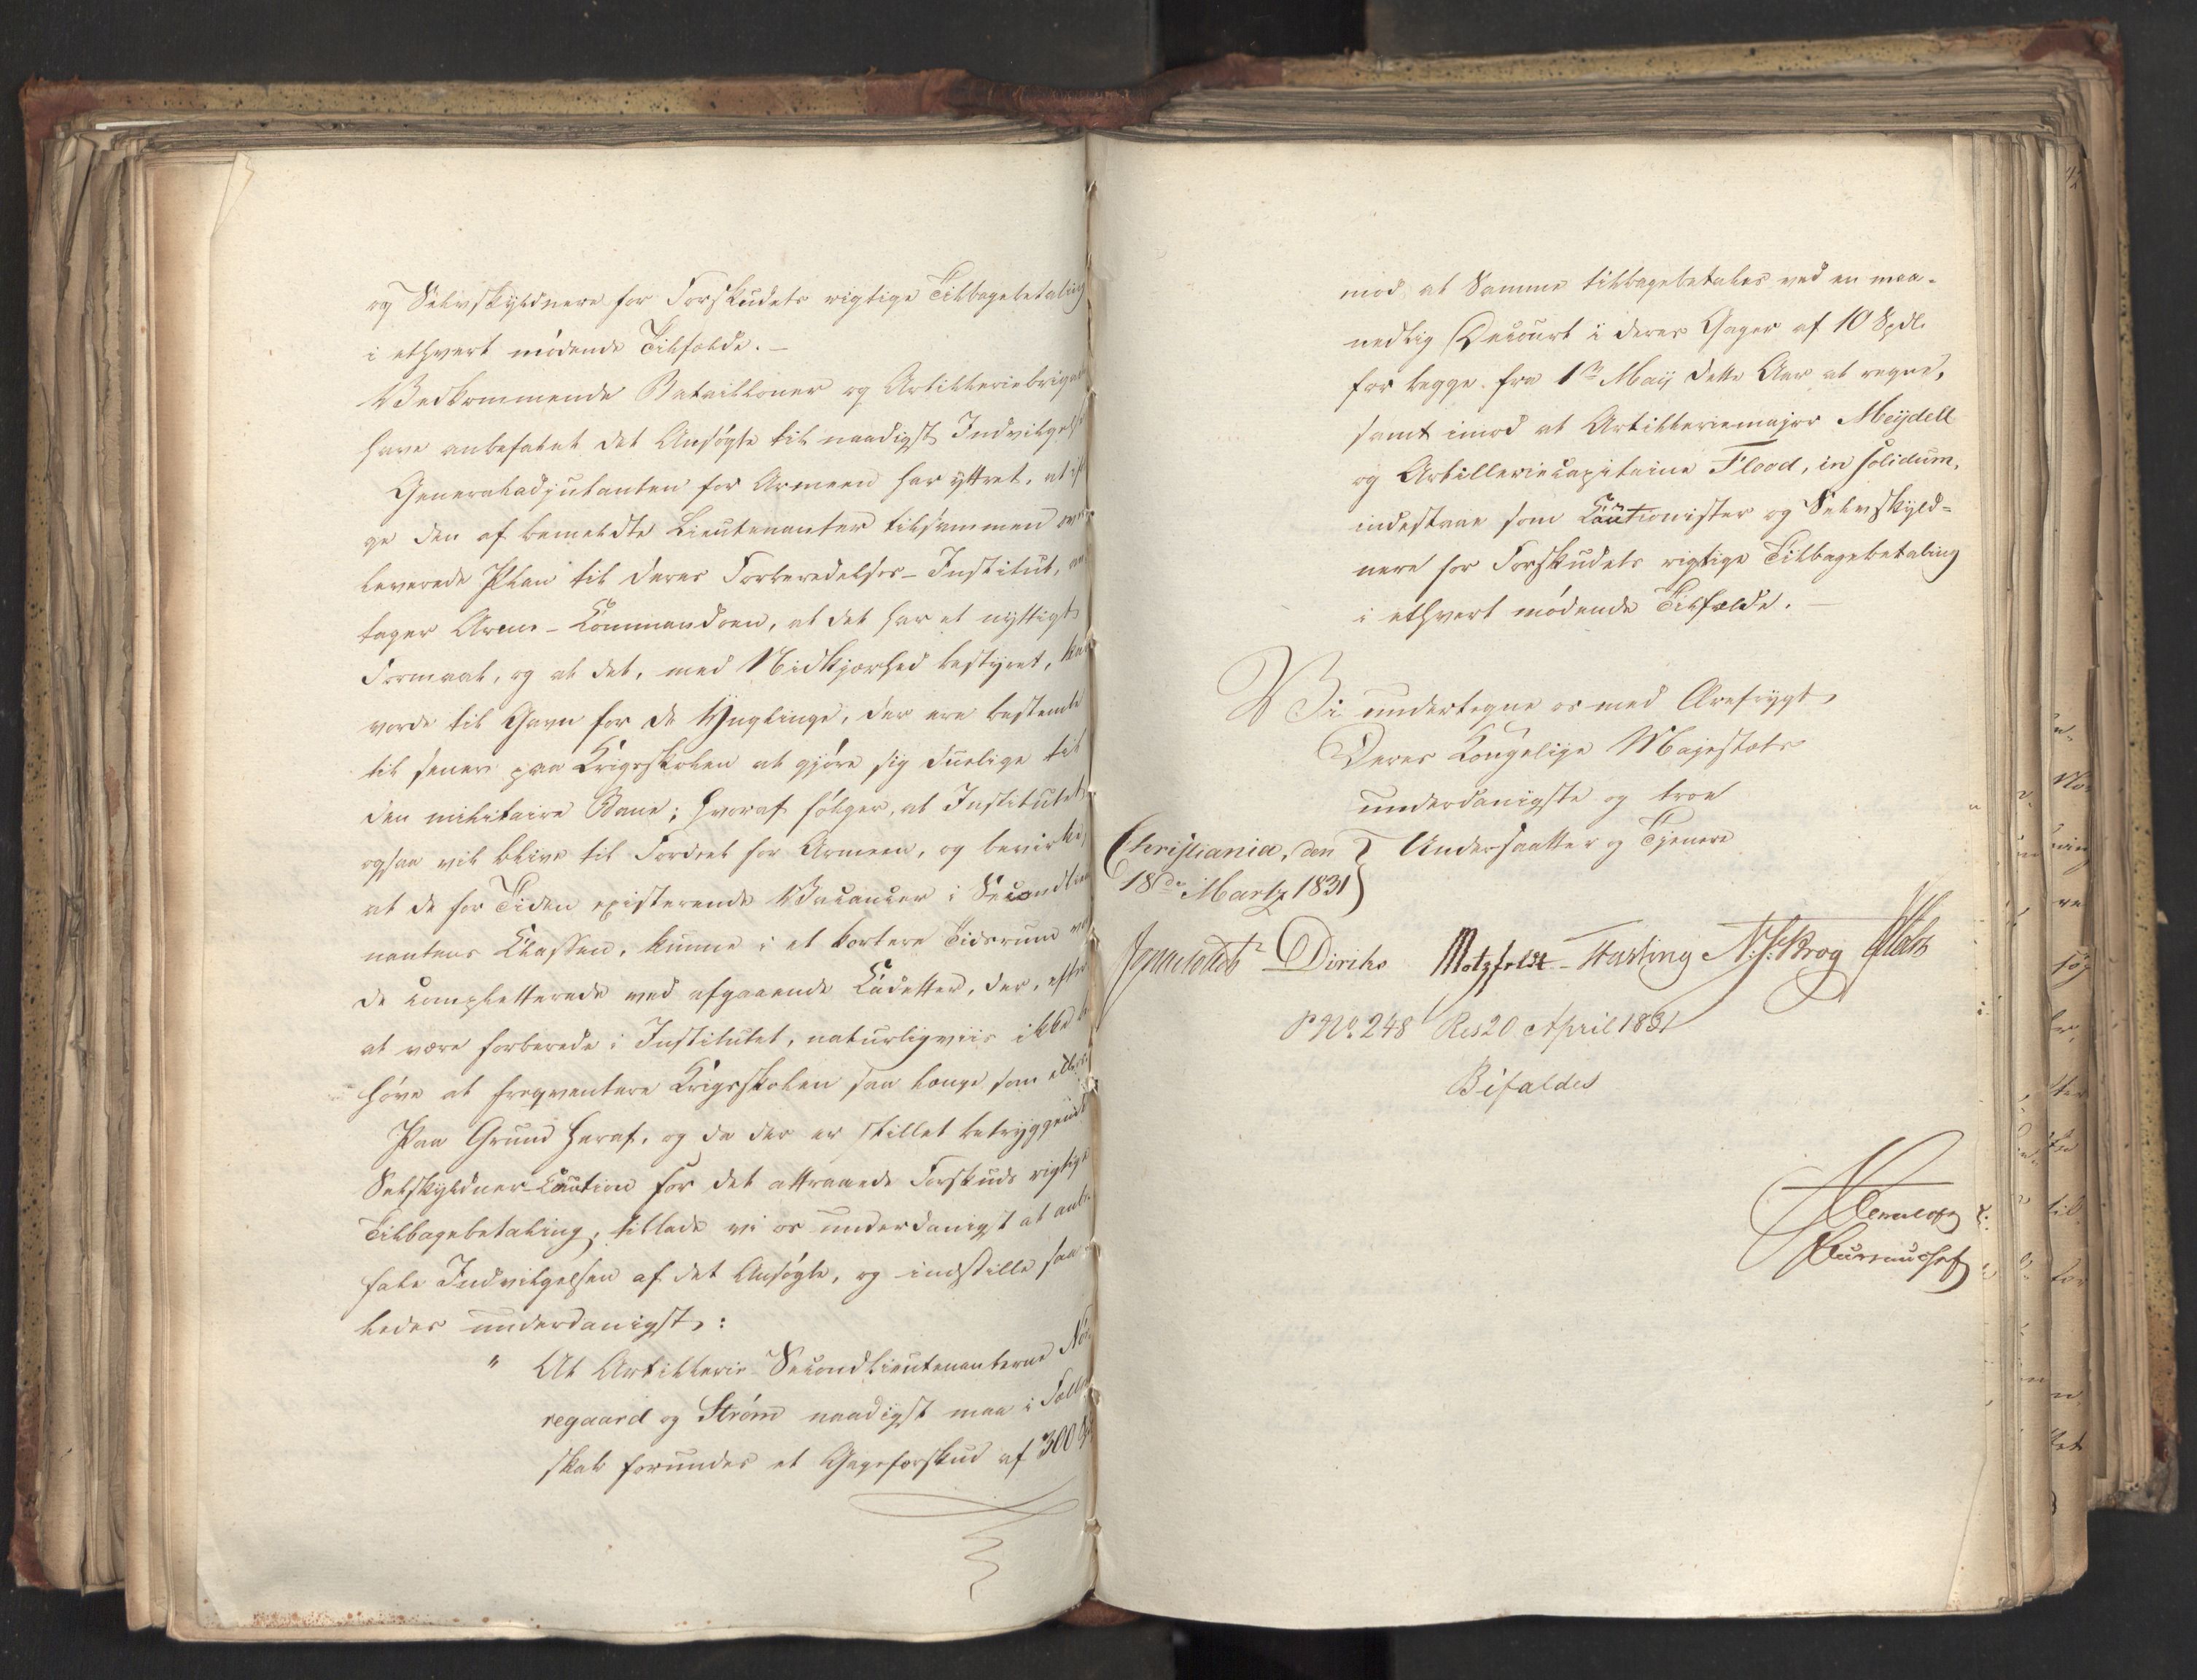 og Selvskyldnere for Forskudets rigtige Tilbagebetaling
i ethvert mødende Tilfælde. —
Vedkommende Batailloner og Artilleriebrigaden
have anbefalet det Ansøgte til naadigst Indvilgelse
Generaladjutanten for Armeen har yttret, at
ge den af bemeldte Lieutenanter tilsammen
leverede Plan til deres Forberedelses-Institut,
tager Armee-Commandoen, at det har et nyttigt
Formaal, og at det, med Nidkjærhed bestyret, kan
vorde til Gavn for de Ynglinge, der ere bestemte
til senere paa Krigsskolen at gjøre sig duelige til
den militaire Bane; hvoraf følger, at Institutet
ogsaa vil blive til Fordeel for Armeen, og bevirke,
at de for Tiden existerende Vacancer i Secondlieu
nantens Classen, kunne i et kortere Tidsrum
de completterede med afgaaende Cadetter, der, efter
at være forberede i Institutet, naturligviis ikke be
høve at freqventere Krigsskolen saa længe som ellers.
Paa Grund heraf, og da der er stillet betryggende
Selskyldner-Caution for det attraaede Forskuds rigtige
Tilbagebetaling, tillade vi os underdanigst at anbe
fale Indvilgelsen af det Ansøgte, og indstille saa
ledes underdanigst:
" At Artillerie Secondlieutenanterne Nør
regaard og Strøm naadigst maa i Fælled
skab forundes et Gageforskud af 300 Spd
mod at Samme tilbagebetales ved en maa-
nedlig Decourt i deres Gager af 10 Spdl.
for begge fra 1ste Maij dette Aar at regne,
samt imod at Artilleriemajor Meijdell
og Artilleriecapitaine Flood, in solidum,
indestaae som Cautionister og Selvskyld=
nere for Forskudets rigtige Tilbagebetaling
i ethvert mødende Tilfælde. —
Vi undertegne os med Ærefrygt,
Deres Kongelige Majestæts
underdanigste og troe
Christiania, den } Undersaatter og Tjenere
18de Martz 1831
Diriks Motzfeldt Fasting N:J:Krog Holst
P No. 248 Res 20 April 1831
Bifaldes
Bureauchef